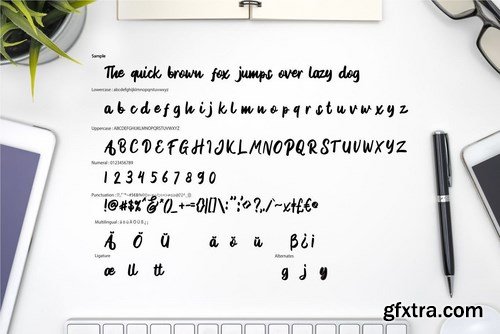 Sample
The quick brown fox jumps over lazy dog
Lowercase : abcdefghijklmnopqrstuvwxyz
a b c d e f g h i j k l m n o p q r s t u v w x y z
Uppercase : ABCDEFGHIJKLMNOPQRSTUVWXYZ
A B C D E F G H I J K L M N O P Q R S T U V W X Y Z
Numeral : 0123456789
1 2 3 4 5 6 7 8 9 0
Punctuation :
!@#$%^&*()_+-={}|[]\:";'<>?,./~
Multilingual : ä ö ü Ä Ö Ü ß ¿ ¡
Ä Ö Ü ä ö ü ß ¿ i
Ligature Alternates
æ ll tt g j y
gfxtra.com